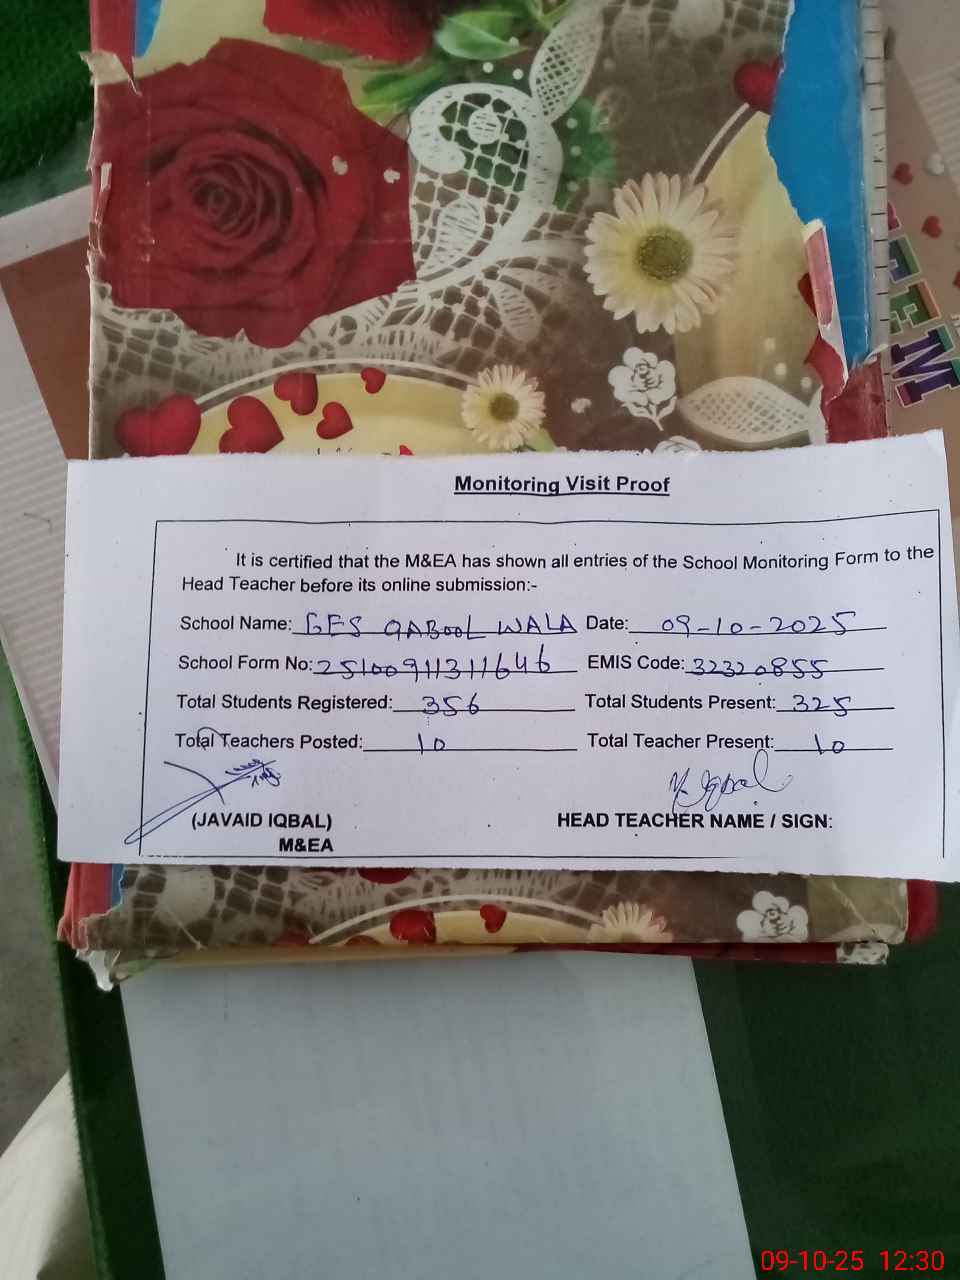 Monitoring Visit Proof
It is certified that the M&EA has shown all entries of the School Monitoring Form to the
Head Teacher before its online submission:-
School Name: GES QABOOL WALA Date: 09-10-2025
School Form No: 2510091131 1646 EMIS Code: 32320855
Total Students Registered: 356 Total Students Present: 325
Total Teachers Posted: 10 Total Teacher Present: 10
Iqbal
(JAVAID IQBAL) HEAD TEACHER NAME / SIGN:
M&EA
09-10-25 12:30